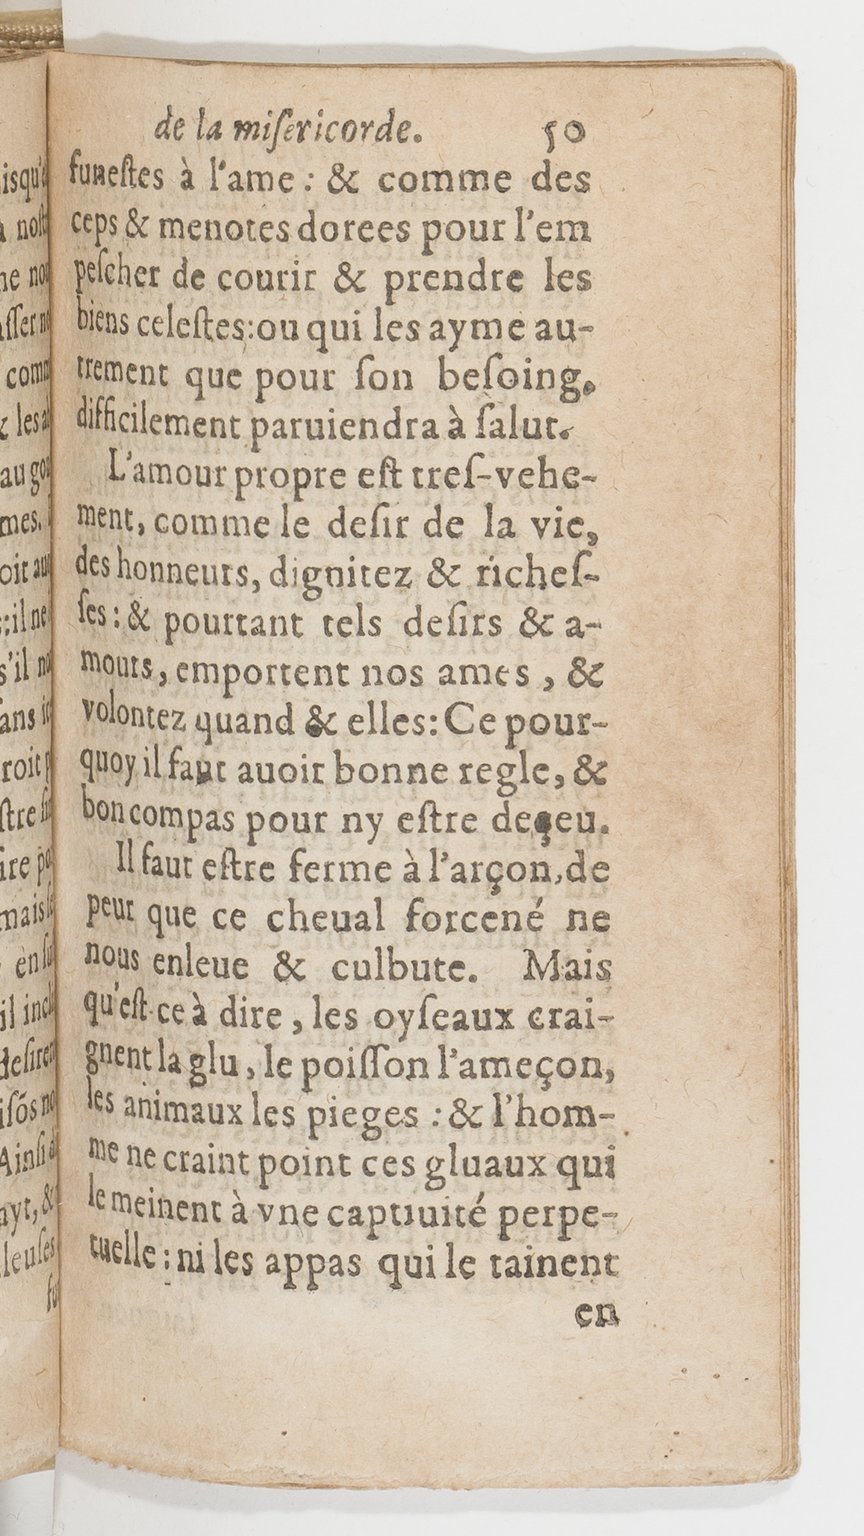 de la miſericorde. 50
funeſtes à l'ame : & comme des
ceps & menotes dorees pour l'em
peſcher de courir & prendre les
biens celeſtes:ou qui les ayme au-
trement que pour ſon beſoing,
difficilement paruiendra à ſalut.
L'amour propre eſt treſ-vehe-
ment, comme le deſir de la vie,
des honneurs, dignitez & richeſ-
ſes : & pourtant tels deſirs & a-
mours, emportent nos ames , &
volontez quand & elles: Ce pour-
quoy il faut auoir bonne regle, &
bon compas pour ny eſtre deçeu.
Il faut eſtre ferme à l'arçon, de
peur que ce cheual forcené ne
nous enleue & culbute. Mais
qu'eſt-ce à dire , les oyſeaux crai-
gnent la glu , le poiſſon l'ameçon,
les animaux les pieges : & l'hom-
me ne craint point ces gluaux qui
le meinent à vne captiuité perpe-
tuelle : ni les appas qui le tainent
en